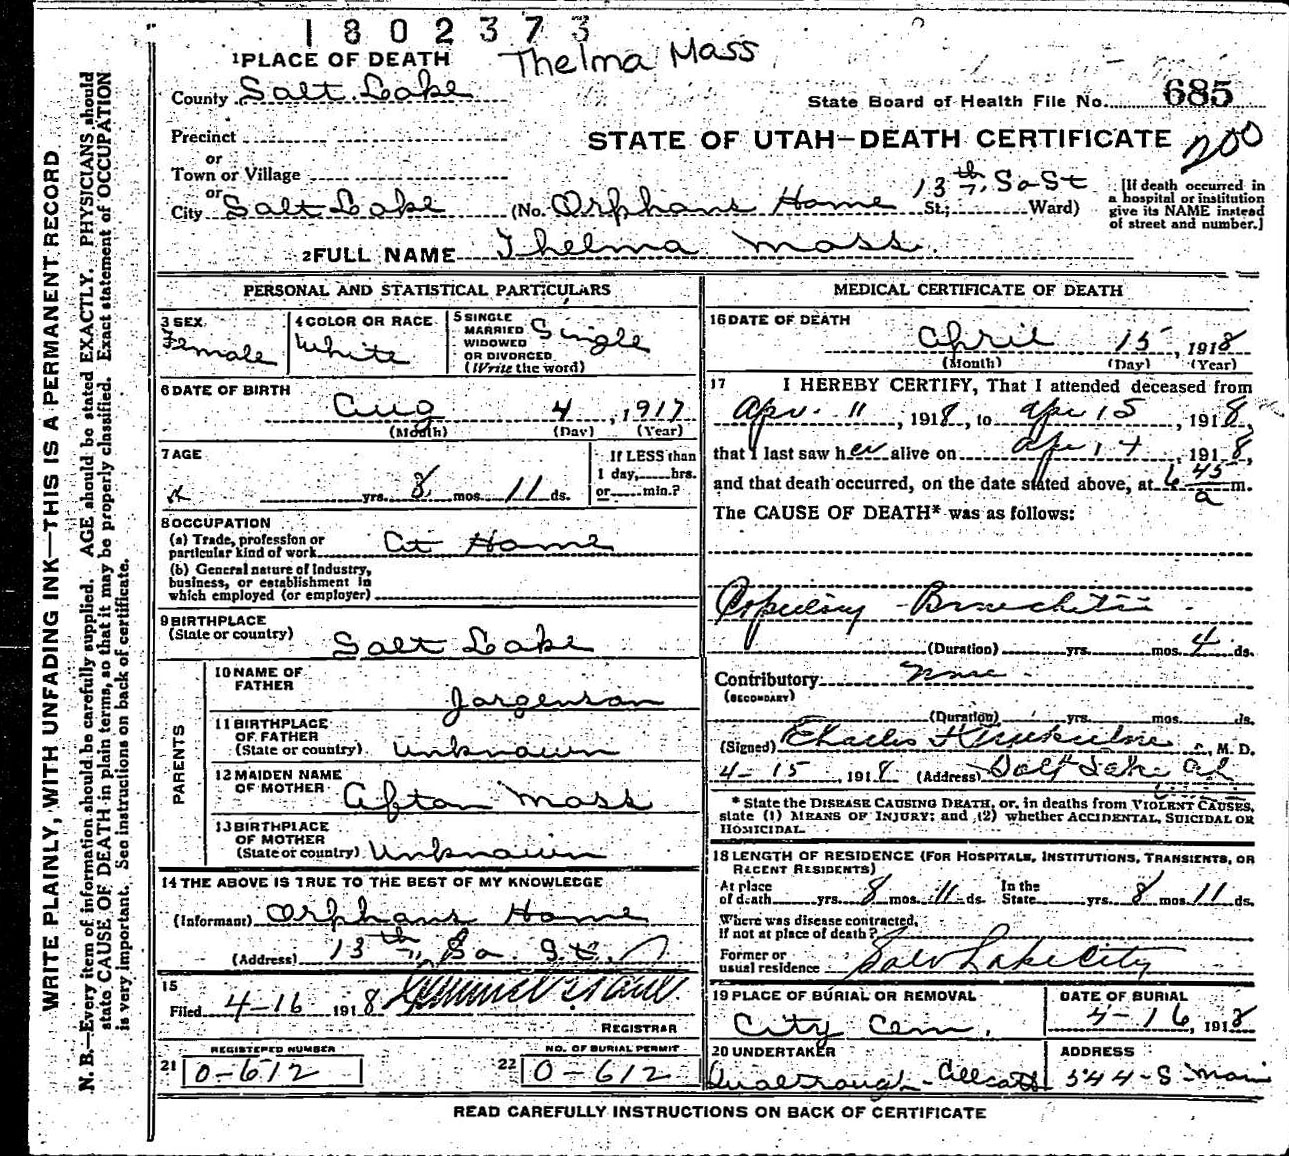 1802373
1 PLACE OF DEATH Thelma Mass
County Salt Lake
State Board of Health File No. 685
Precinct
STATE OF UTAH—DEATH CERTIFICATE 200
or
Town or Village
or
City Salt Lake (No. Orphans Home 13th So St St; Ward)
[If death occurred in a hospital or institution give its NAME instead of street and number.]
2 FULL NAME Thelma Mass
PERSONAL AND STATISTICAL PARTICULARS
3 SEX Female
4 COLOR OR RACE White
5 SINGLE MARRIED WIDOWED OR DIVORCED (Write the word) Single
6 DATE OF BIRTH
Aug 4, 1917
(Month) (Day) (Year)
7 AGE
yrs. 8 mos. 11 ds.
If LESS than 1 day, hrs. or min.?
8 OCCUPATION
(a) Trade, profession or particular kind of work At Home
(b) General nature of Industry, business, or establishment in which employed (or employer)
9 BIRTHPLACE
(State or country) Salt Lake
PARENTS
10 NAME OF FATHER Jorgenson
11 BIRTHPLACE OF FATHER (State or country) Unknown
12 MAIDEN NAME OF MOTHER Afton Mass
13 BIRTHPLACE OF MOTHER (State or country) Unknown
14 THE ABOVE IS TRUE TO THE BEST OF MY KNOWLEDGE
(Informant) Orphans Home
(Address) 13th So. St.
15
Filed 4-16 1918
REGISTRAR
21 REGISTERED NUMBER 0-612
22 NO. OF BURIAL PERMIT 0-612
MEDICAL CERTIFICATE OF DEATH
16 DATE OF DEATH
April 15, 1918
(Month) (Day) (Year)
17 I HEREBY CERTIFY, That I attended deceased from
Apr. 11, 1918, to Apr 15, 1918,
that I last saw her alive on Apr 14, 1918,
and that death occurred, on the date stated above, at 6 45 a m.
The CAUSE OF DEATH* was as follows:
Bronchitis
(Duration) yrs. mos. 4 ds.
Contributory None
(SECONDARY)
(Duration) yrs. mos. ds.
(Signed) Charles M. D.
4-15, 1918 (Address) Salt Lake
* State the DISEASE CAUSING DEATH, or, in deaths from VIOLENT CAUSES,
state (1) MEANS OF INJURY; and (2) whether ACCIDENTAL, SUICIDAL OR
HOMICIDAL.
18 LENGTH OF RESIDENCE (FOR HOSPITALS, INSTITUTIONS, TRANSIENTS, OR
RECENT RESIDENTS)
At place of death yrs. 8 mos. 11 ds. In the State yrs. 8 mos. 11 ds.
Where was disease contracted,
If not at place of death?
Former or usual residence Salt Lake City
19 PLACE OF BURIAL OR REMOVAL
City Cem.
DATE OF BURIAL
4-16, 1918
20 UNDERTAKER
ADDRESS
544-S-Main
READ CAREFULLY INSTRUCTIONS ON BACK OF CERTIFICATE
WRITE PLAINLY, WITH UNFADING INK—THIS IS A PERMANENT RECORD
N. B.—Every item of information should be carefully supplied. AGE should be stated EXACTLY. PHYSICIANS should
state CAUSE OF DEATH in plain terms, so that it may be properly classified. Exact statement of OCCUPATION
is very important. See instructions on back of certificate.